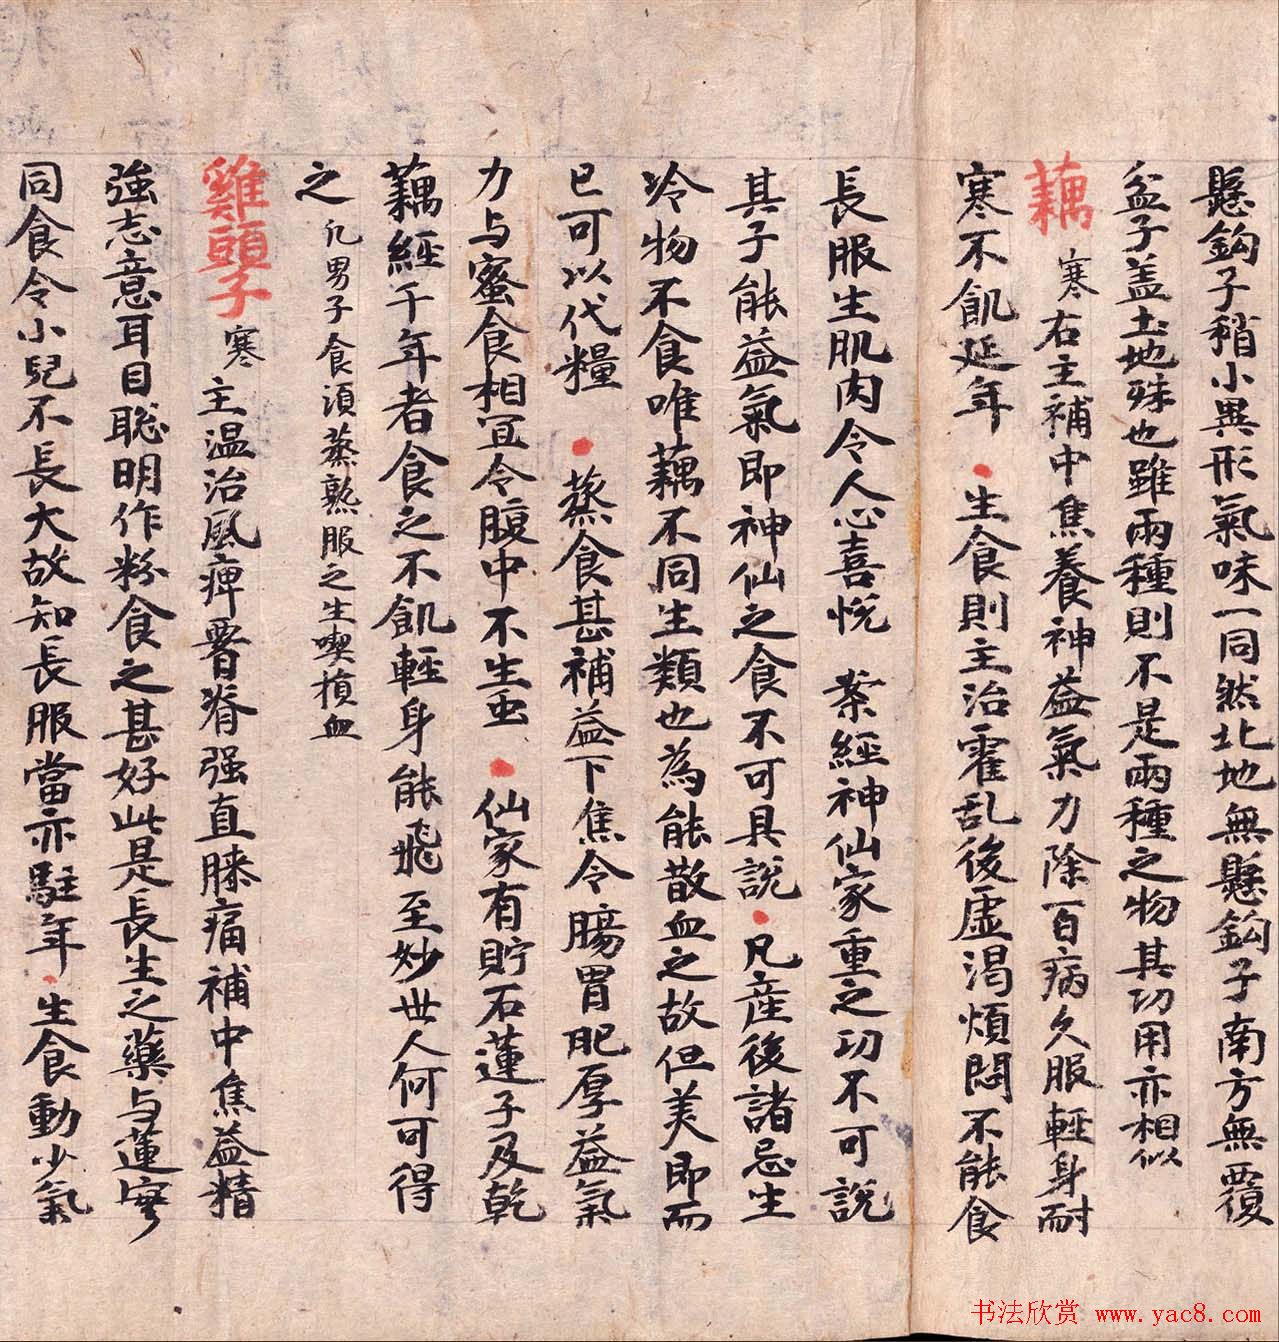 懸鈎子稍小異形氣味一同然北地無懸鈎子南方無覆
盆子盖土地殊也雖兩種則不是兩種之物其功用亦相似
藕 寒 右主補中焦養神益氣力除百病久服輕身耐
寒不飢延年 生食則主治霍乱後虛渴煩悶不能食
長服生肌肉令人心喜悅 案經神仙家重之功不可說
其子能益氣即神仙之食不可具說 凡産後諸忌生
冷物不食唯藕不同生類也為能散血之故但美即而
已可以代糧 蒸食甚補益下焦令腸胃肥厚益氣
力与蜜食相宜令腹中不生虫 仙家有貯石蓮子及乾
藕經千年者食之不飢輕身能飛至妙世人何可得
之 凡男子食湏蒸熟服之生喫損血
雞頭子 寒 主温治風痺 脊强直膝痛補中焦益精
強志意耳目聡明作粉食之甚好此是長生之藥与蓮實
同食令小兒不長大故知長服當亦駐年 生食動少氣
书法欣赏 www.yac8.com